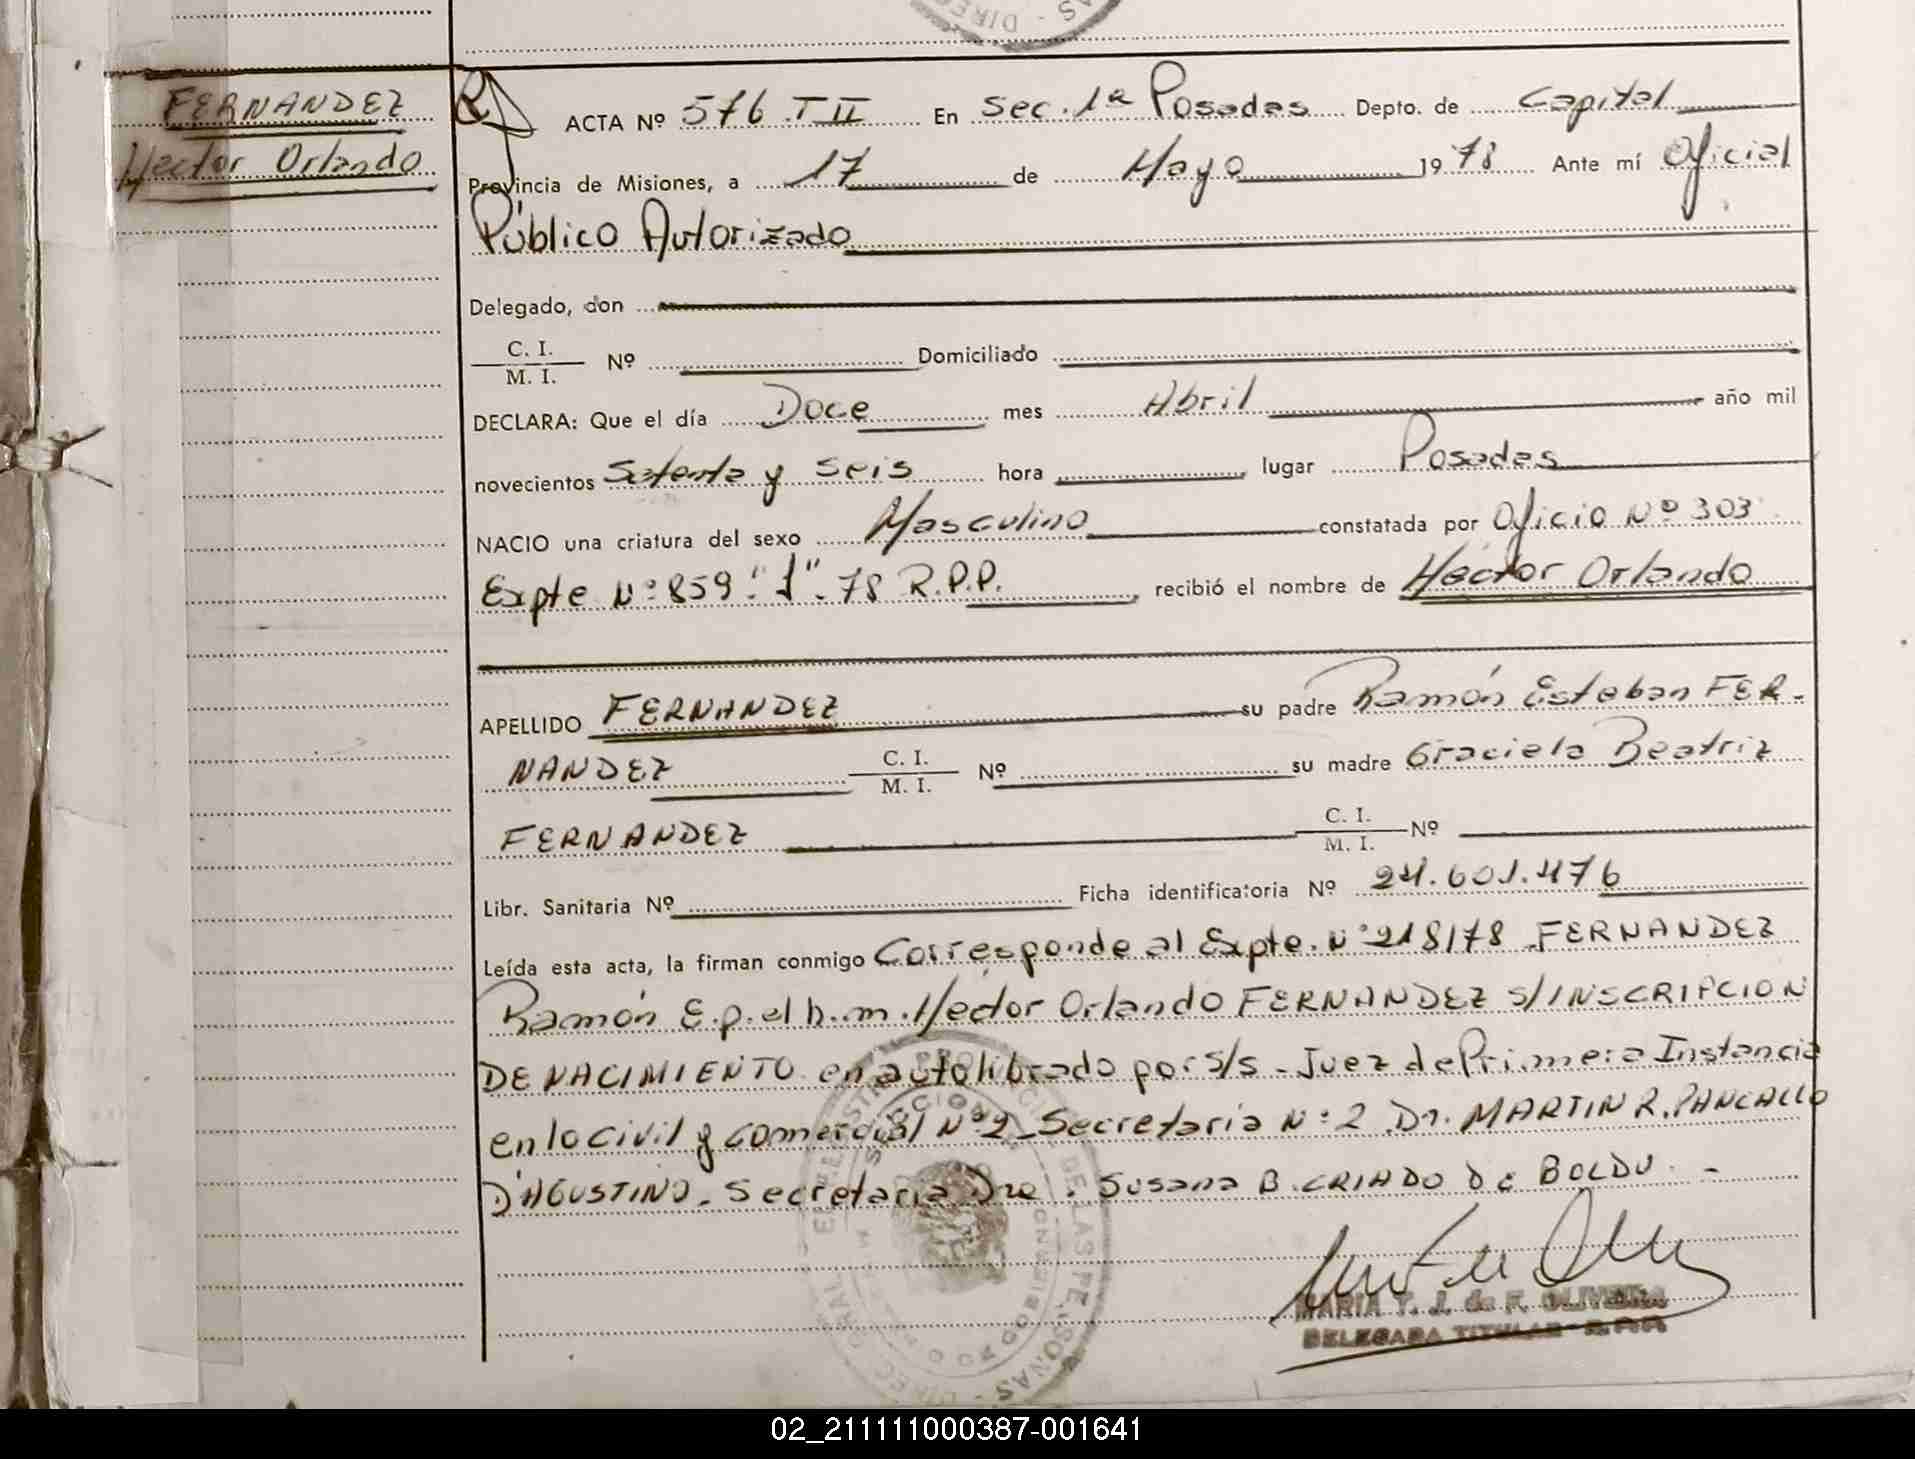 FERNANDEZ
Hector Orlando
ACTA Nº 576 T II En Sec. 1ª Posadas Depto. de Capital
Provincia de Misiones, a 17 de Mayo 1978 Ante mí Oficial
Público Autorizado
Delegado, don
C. I.
M. I. Nº Domiciliado
DECLARA: Que el día Doce mes Abril año mil
novecientos Setenta y Seis hora lugar Posadas
NACIO una criatura del sexo Masculino constatada por Oficio Nº 303
Expte Nº 859 "J" 78 R.P.P. recibió el nombre de Hector Orlando
APELLIDO FERNANDEZ su padre Ramón Esteban FER-
NANDEZ C. I. M. I. Nº su madre Graciela Beatriz
FERNANDEZ C. I. M. I. Nº
Libr. Sanitaria Nº Ficha identificatoria Nº 24.601.476
Leída esta acta, la firman conmigo Corresponde al Expte. Nº 218/78 FERNANDEZ
Ramón E. p. el h. m. Hector Orlando FERNANDEZ S/INSCRIPCION
DE NACIMIENTO en autolibrado por S/S - Juez de Primera Instancia
en lo Civil y Comercial Nº 2 - Secretaria Nº 2 Dr. MARTIN R. PANCALLO
D'AGUSTINO - Secretaria Dra. Susana B. CRIADO De BOLDU. -
MARIA T. J. de F. OLIVEIRA
DELEGADA TITULAR
02_211111000387-001641